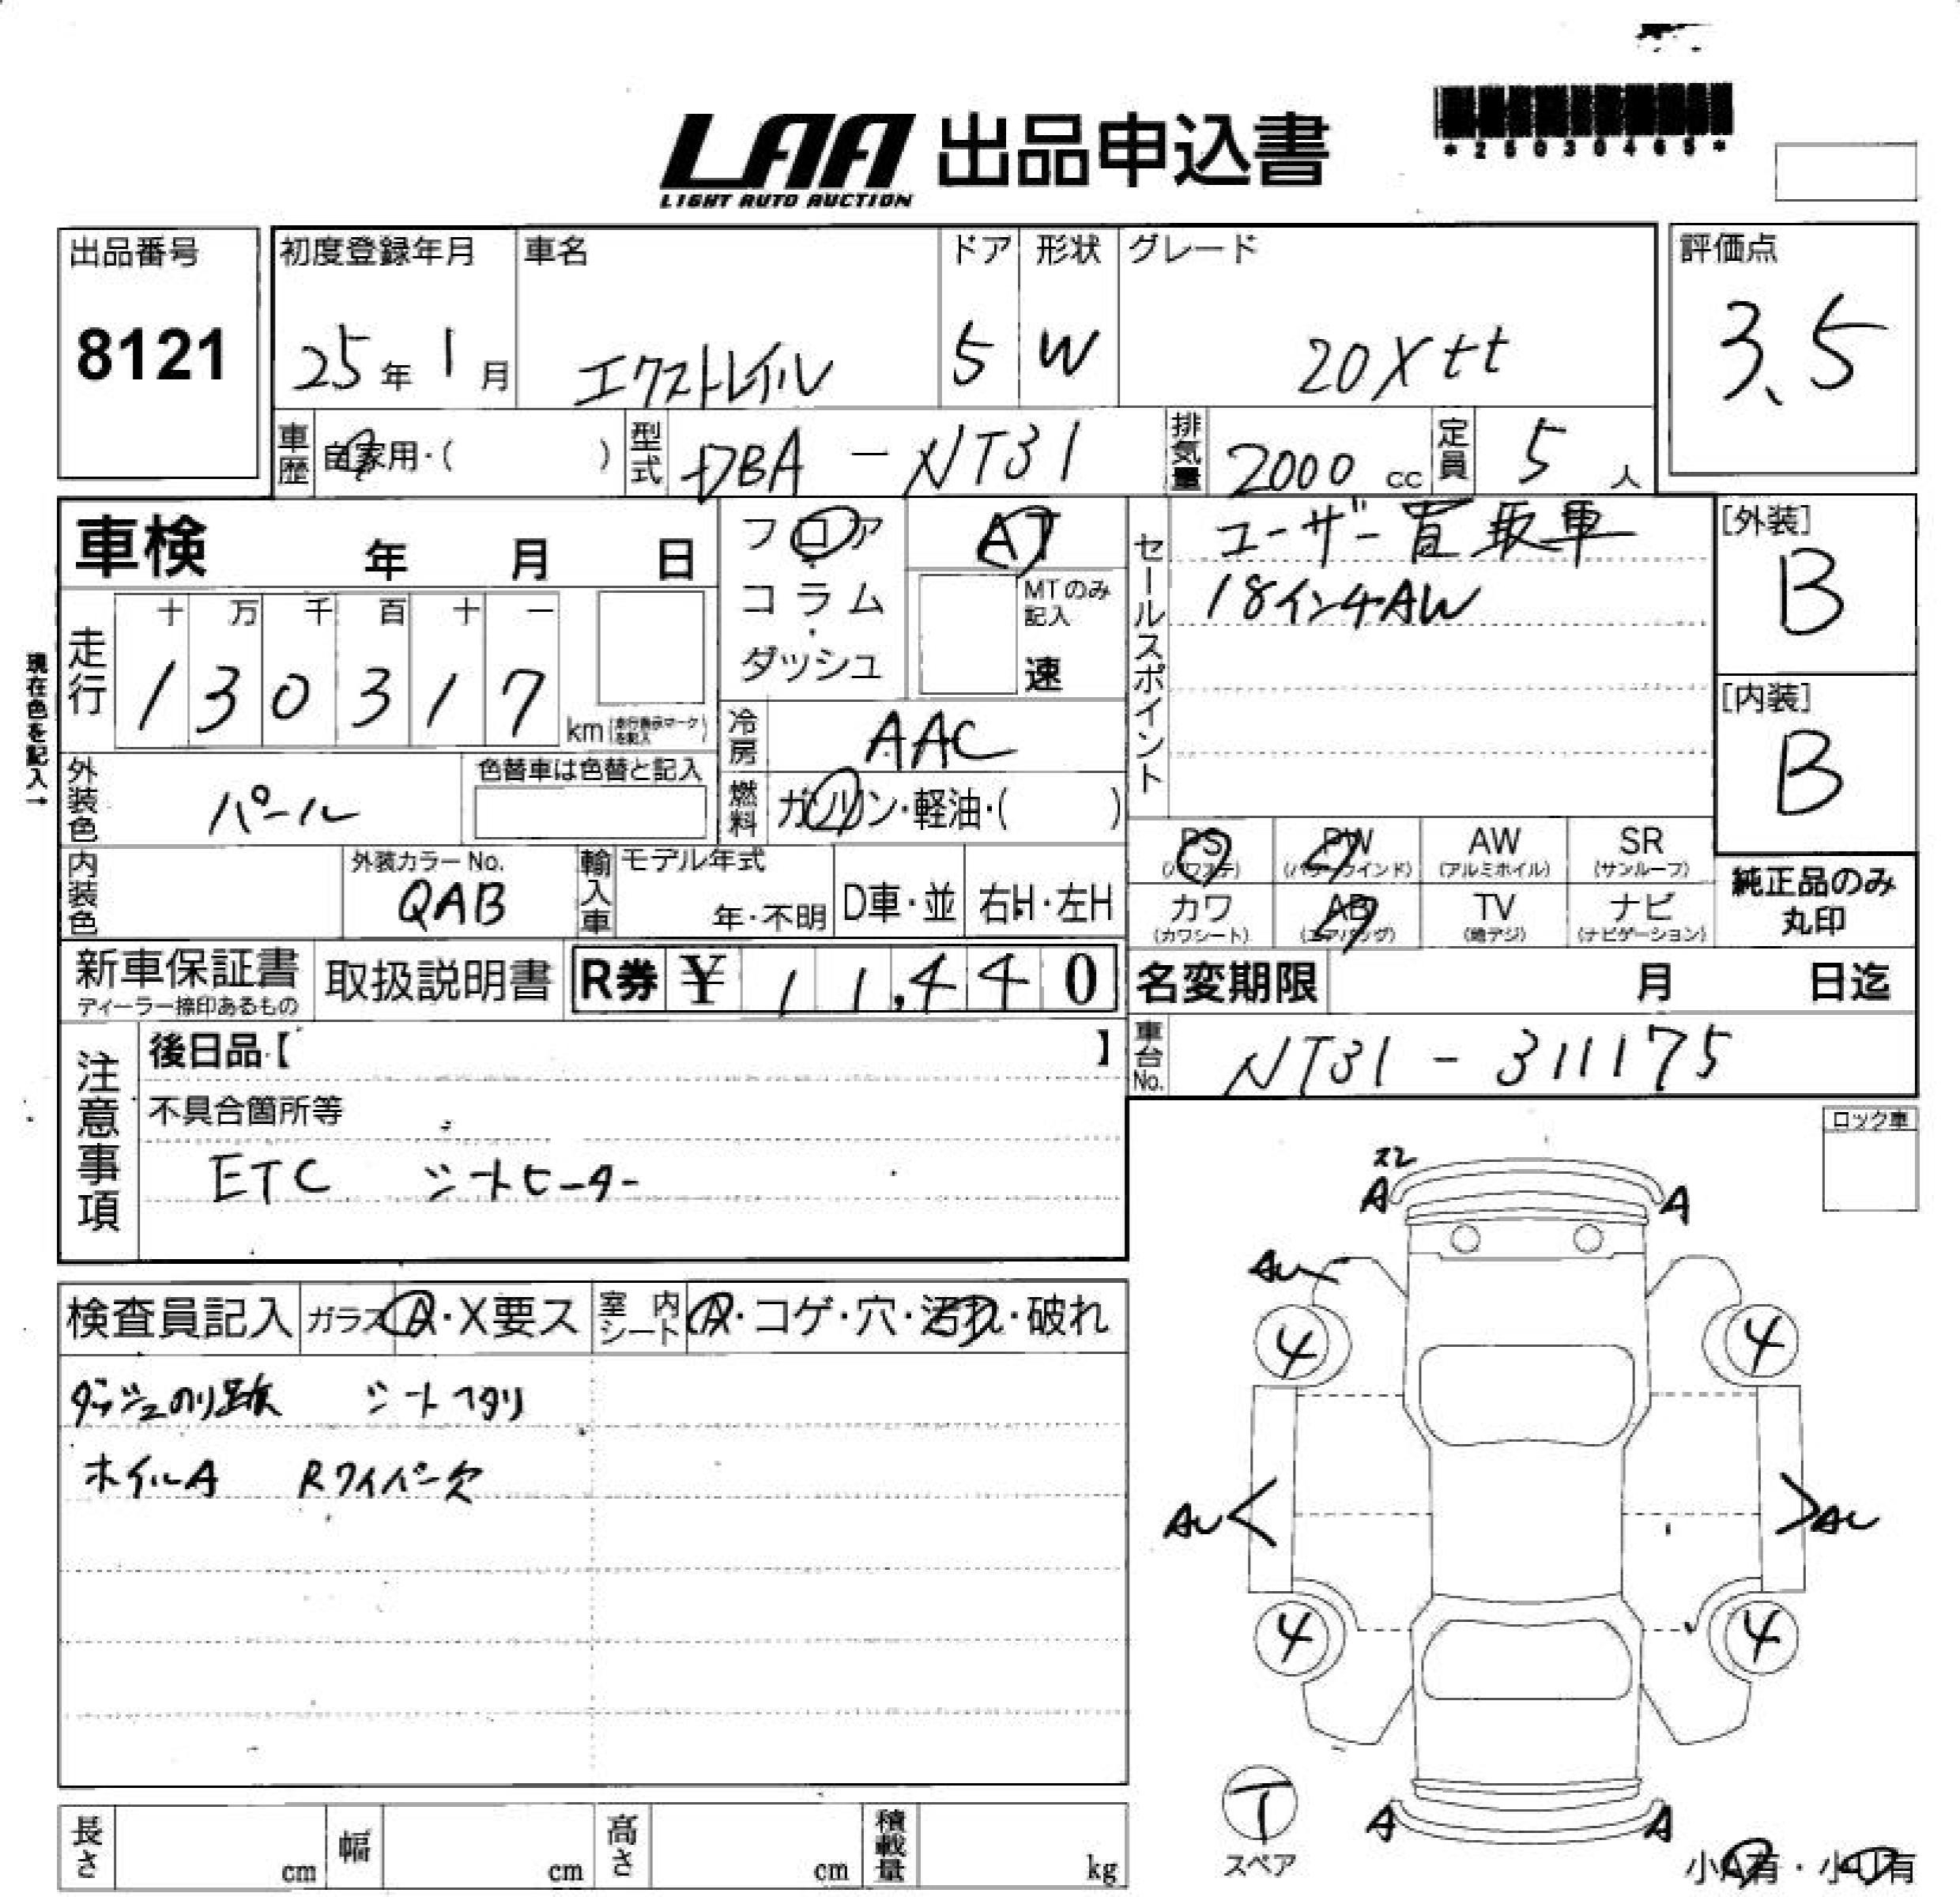 LAA 出品申込書
LIGHT AUTO AUCTION
*25030465*
出品番号
8121
初度登録年月
25年 1月
車名
エクストレイル
ドア
5
形状
W
グレード
20Xtt
評価点
3.5
車歴
自家用・( )
型式
DBA - NT31
排気量
2000 cc
定員
5 人
車検 年 月 日
フロア
コラム
ダッシュ
AT
MTのみ
記入
速
セールスポイント
ユーザー買取車
18インチAW
[外装]
B
[内装]
B
現在色を記入→
走行
十 万 千 百 十 一
1 3 0 3 1 7
km
冷房
AAC
外装色
パール
色替車は色替と記入
燃料
ガソリン・軽油・( )
PS
(パワステ)
PW
(パワーウインド)
AW
(アルミホイル)
SR
(サンルーフ)
カワ
(カワシート)
AB
(エアバッグ)
TV
(地デジ)
ナビ
(ナビゲーション)
純正品のみ
丸印
内装色
外装カラーNo.
QAB
輸入車
モデル年式
年・不明
D車・並
右H・左H
新車保証書
ディーラー捺印あるもの
取扱説明書
R券 ¥ 11,440
名変期限 月 日迄
車台No.
NT31 - 311175
注意事項
後日品【 】
不具合箇所等
ETC シートヒーター
ロック車
検査員記入
ガラス
A・X要ス
室内シート
A・コゲ・穴・汚れ・破れ
ダッシュのり跡 シートヘタリ
ホイルA Rワイパー欠
スレ
A A
AU
4 4
AU AU
4 4
T
スペア
A A
小A有・小U有
長さ cm
幅 cm
高さ cm
積載量 kg